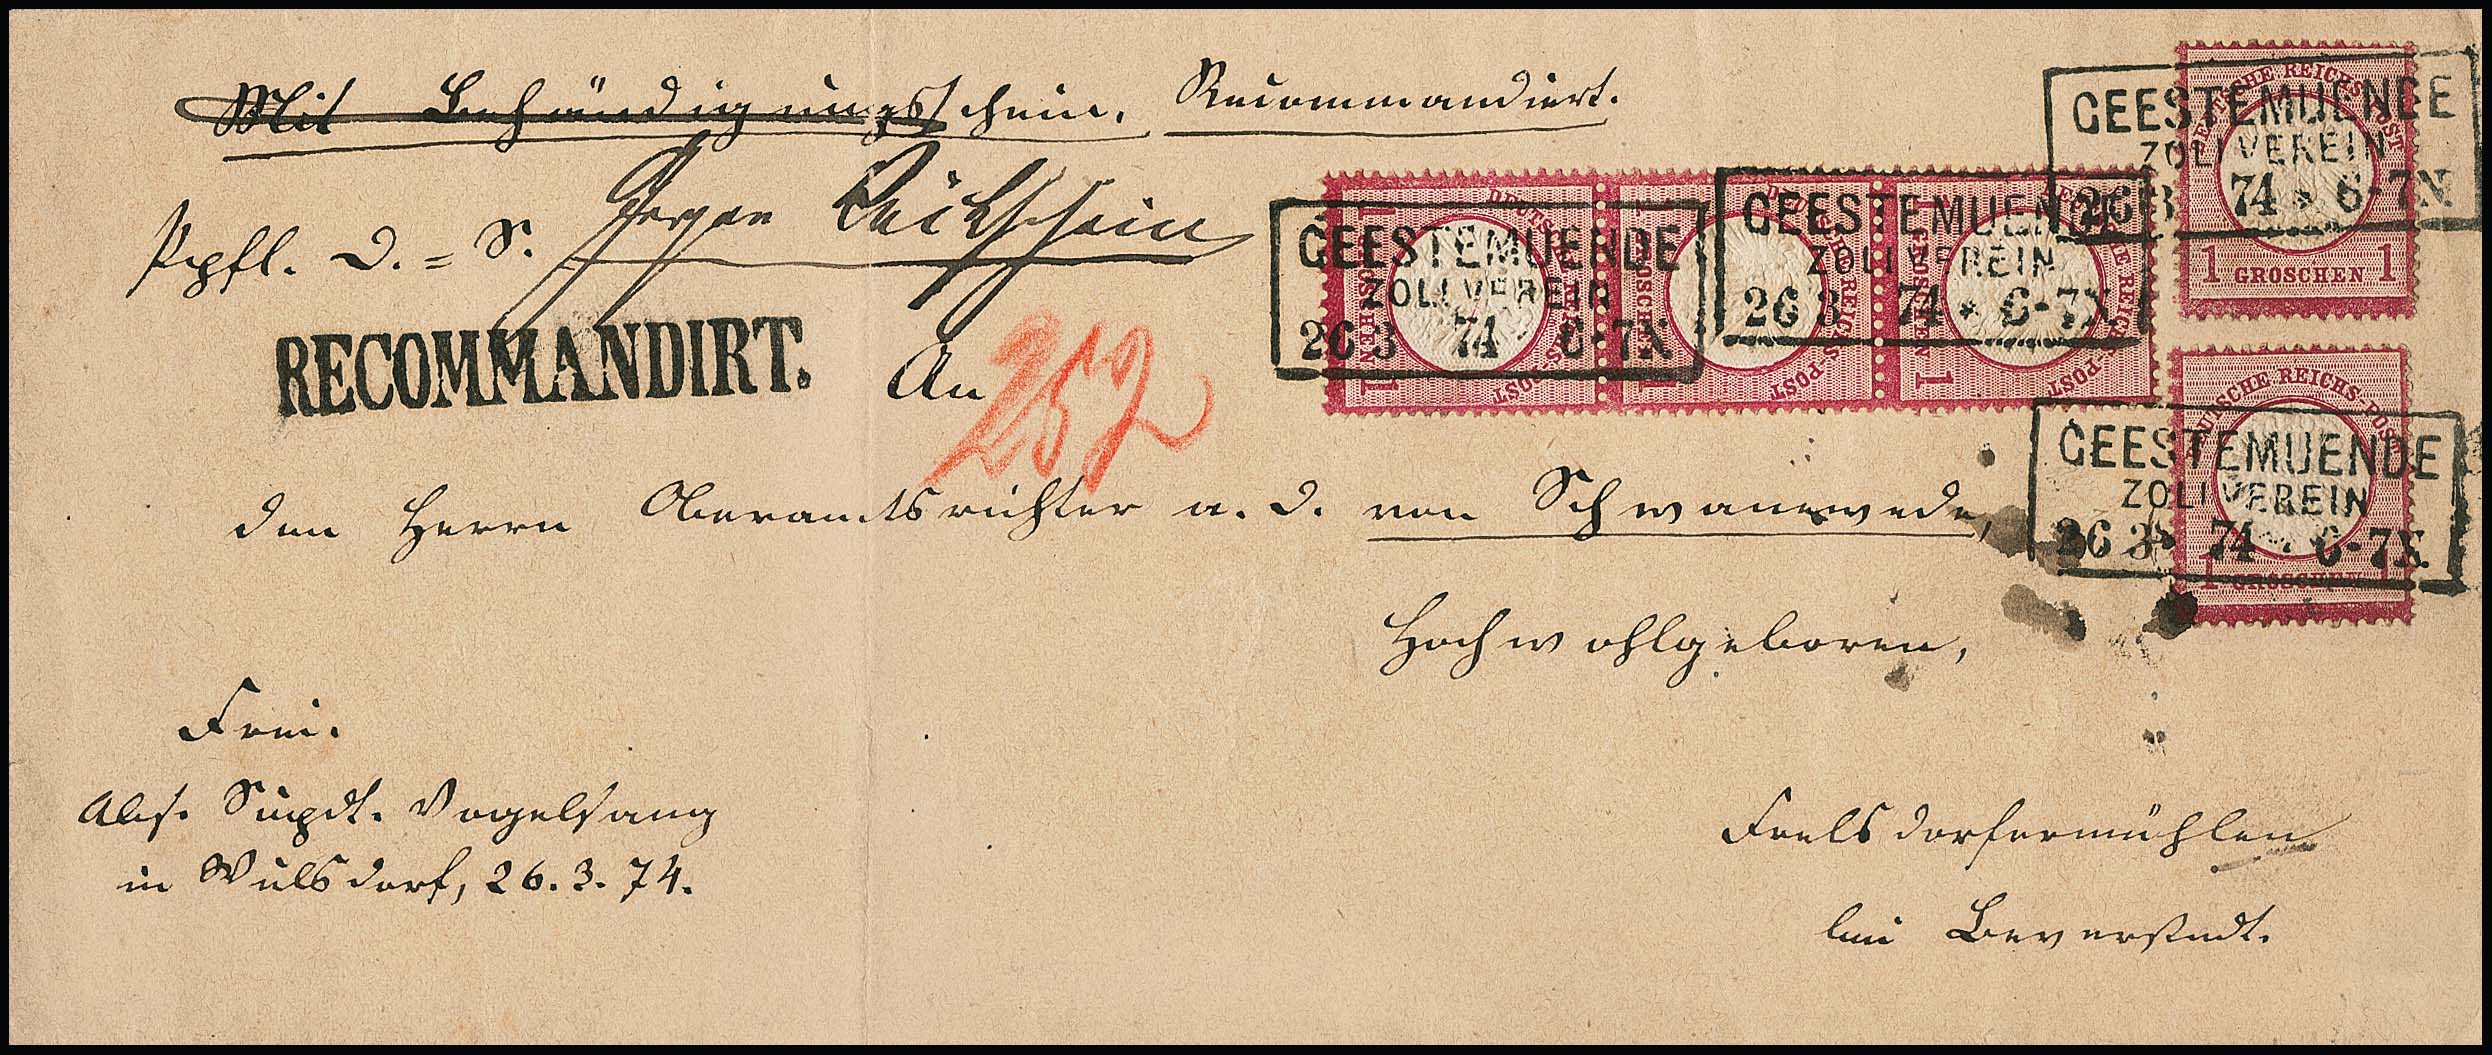 Mit Behändigungsschein. Recommandirt.
Prpfl. D. = S. gegen Rückschein
RECOMMANDIRT.
An
252
den Herrn Oberamtsrichter a. D. von Schwanewede,
Hochwohlgeboren,
Frei.
Abs. Supdt. Vogelsang
in Wulsdorf, 26.3.74.
Frelsdorfermühlen
bei Beverstedt.
DEUTSCHE REICHS-POST
1 GROSCHEN 1
GEESTEMUENDE
ZOLLVEREIN
26 3 74 * 6-7N
DEUTSCHE REICHS-POST
1 GROSCHEN 1
DEUTSCHE REICHS-POST
1 GROSCHEN 1
DEUTSCHE REICHS-POST
1 GROSCHEN 1
GEESTEMUENDE
ZOLLVEREIN
26 3 74 6-7N
GEESTEMUENDE
ZOLLVEREIN
26 3 74 * 6-7N
DEUTSCHE REICHS-POST
1 GROSCHEN
GEESTEMUENDE
ZOLLVEREIN
26 3 74 * 6-7N